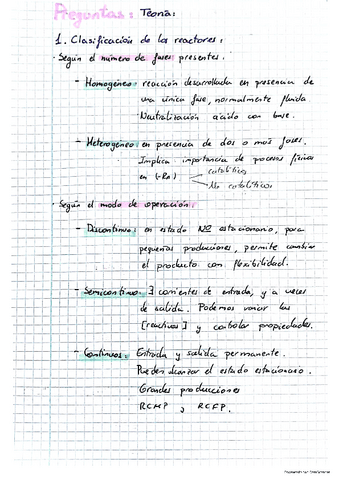 Preguntas: Teoría:
1. Clasificación de los reactores:
· Según el número de fases presentes.
- Homogéneo: reacción desarrollada en presencia de
una única fase, normalmente fluida.
Neutralización ácido con base.
- Heterogéneo: en presencia de dos o más fases.
Implica importancia de procesos físicos
en (-Ra) catalítico
No catalítico
· Según el modo de operación:
- Discontinuo: en estado NO estacionario, para
pequeñas producciones, permite cambiar
el producto con flexibilidad.
- Semicontinuo: ∃ corrientes de entrada, y a veces
de salida. Podemos variar las
[reactivos] y controlar propiedades.
- Continuos: Entrada y salida permanente.
Pueden alcanzar el estado estacionario.
Grandes producciones
RCMP y RCFP.